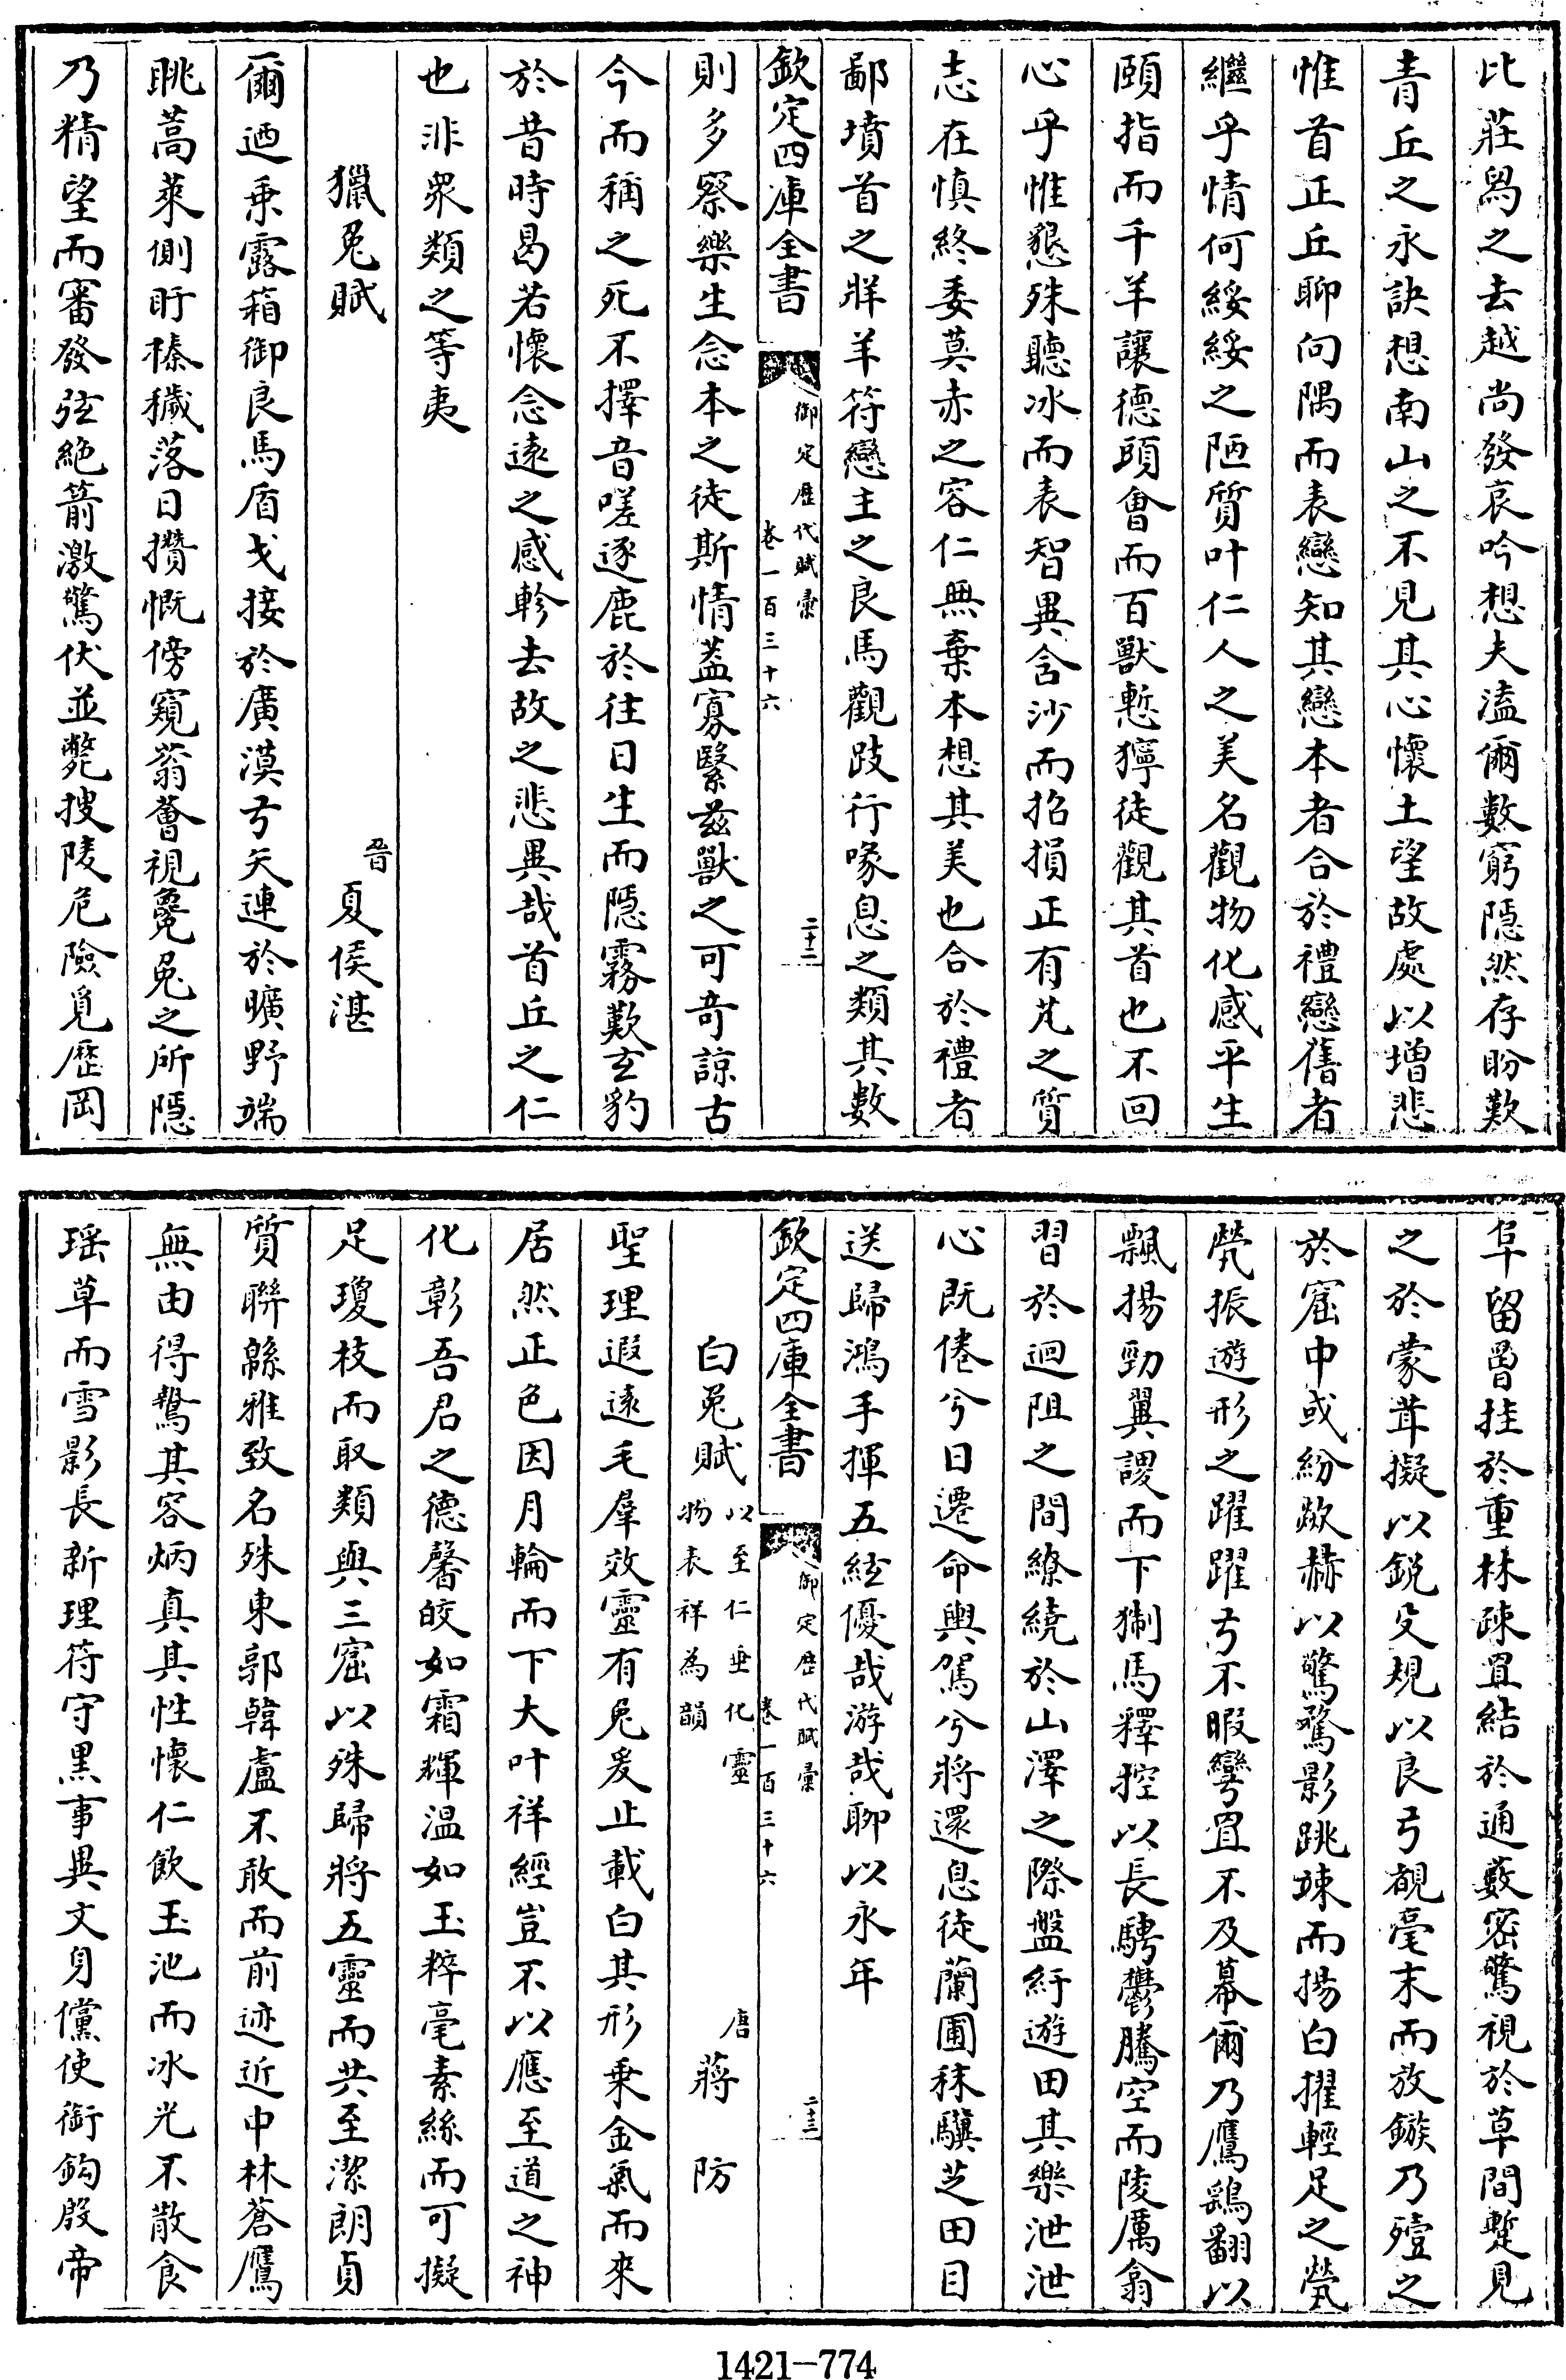 比莊舄之去越尚發哀吟想夫溘爾數窮隱然存盼歎
青丘之永訣想南山之不見其心懷土望故處以增悲
惟首正丘聊向隅而表戀知其戀本者合於禮戀舊者
繼乎情何綏綏之陋質叶仁人之美名觀物化感平生
頤指而千羊讓德頭會而百獸慙獰徒觀其首也不回
心乎惟懇殊聽冰而表智異含沙而招損正有芃之質
志在慎終委莫赤之容仁無棄本想其美也合於禮者
鄙墳首之牂羊符戀主之良馬觀跂行喙息之類其數
欽定四庫全書
御定歷代賦彙
卷一百三十六
二十二
則多察樂生念本之徒斯情蓋寡緊兹獸之可奇諒古
今而稱之死不擇音嗟逐鹿於往日生而隱霧歎玄豹
於昔時曷若懷念遠之感軫去故之悲異哉首丘之仁
也非衆類之等夷
獵兔賦
晉夏侯湛
爾迺乘露箱御良馬盾戈接於廣漠弓矢連於曠野端
眺蒿萊側盱榛穢落日攢慨傍窺蓊薈視㲋兔之所隱
乃精望而審發弦絶箭激驚伏並斃搜陵危險覓歷岡
阜留罾挂於重林疎罝結於通藪密驚視於草間蹔見
之於蒙茸擬以銳殳規以良弓覩毫末而放鏃乃殪之
於窟中或紛歘赫以驚騖影跳竦而揚白擢輕足之煢
煢振遊形之躍躍弓不暇彎罝不及幕爾乃鷹鷂翻以
飄揚勁翼謖而下猘馬釋控以長騁鬱騰空而陵厲翕
習於迴阻之間繚繞於山澤之際盤紆遊田其樂泄泄
心既倦兮日遷命輿駕兮將還息徒蘭圃秣驥芝田目
送歸鴻手揮五絃優哉游哉聊以永年
欽定四庫全書
御定歷代賦彙
卷一百三十六
二十三
白兔賦
以至仁垂化靈
物表祥為韻
唐蔣防
聖理遐遠毛羣效靈有兔爰止載白其形乗金氣而來
居然正色因月輪而下大叶祥經豈不以應至道之神
化彰吾君之德馨皎如霜輝温如玉粹毫素絲而可擬
足瓊枝而取類與三窟以殊歸將五靈而共至潔朗貞
質聯緜雅致名殊東郭韓盧不敢而前迹近中林蒼鷹
無由得鷙其容炳真其性懷仁飲玉池而冰光不散食
瑶草而雪影長新理符守黒事異文身儻使銜鈎殷帝
1421-774